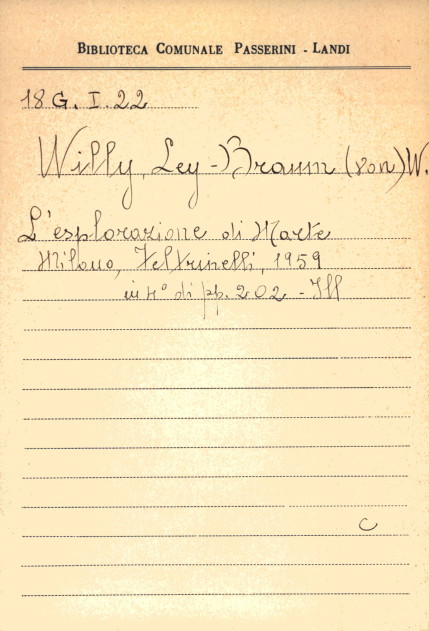 BIBLIOTECA COMUNALE PASSERINI - LANDI
18 G. I. 22
Willy, Ley - Braun (von) W.
L'esplorazione di Marte
Milano, Feltrinelli, 1959
in 4° di pp. 202 - Ill
C